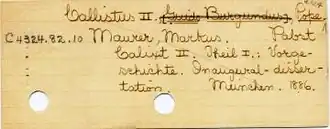 Callistus II, (Guido Burgundus), Pope
C4324.82.10 Maurer, Markus. Pabst
Calixt II. Theil I.: Vorge-
schichte. Inaugural-disser-
tation. München. 1886.